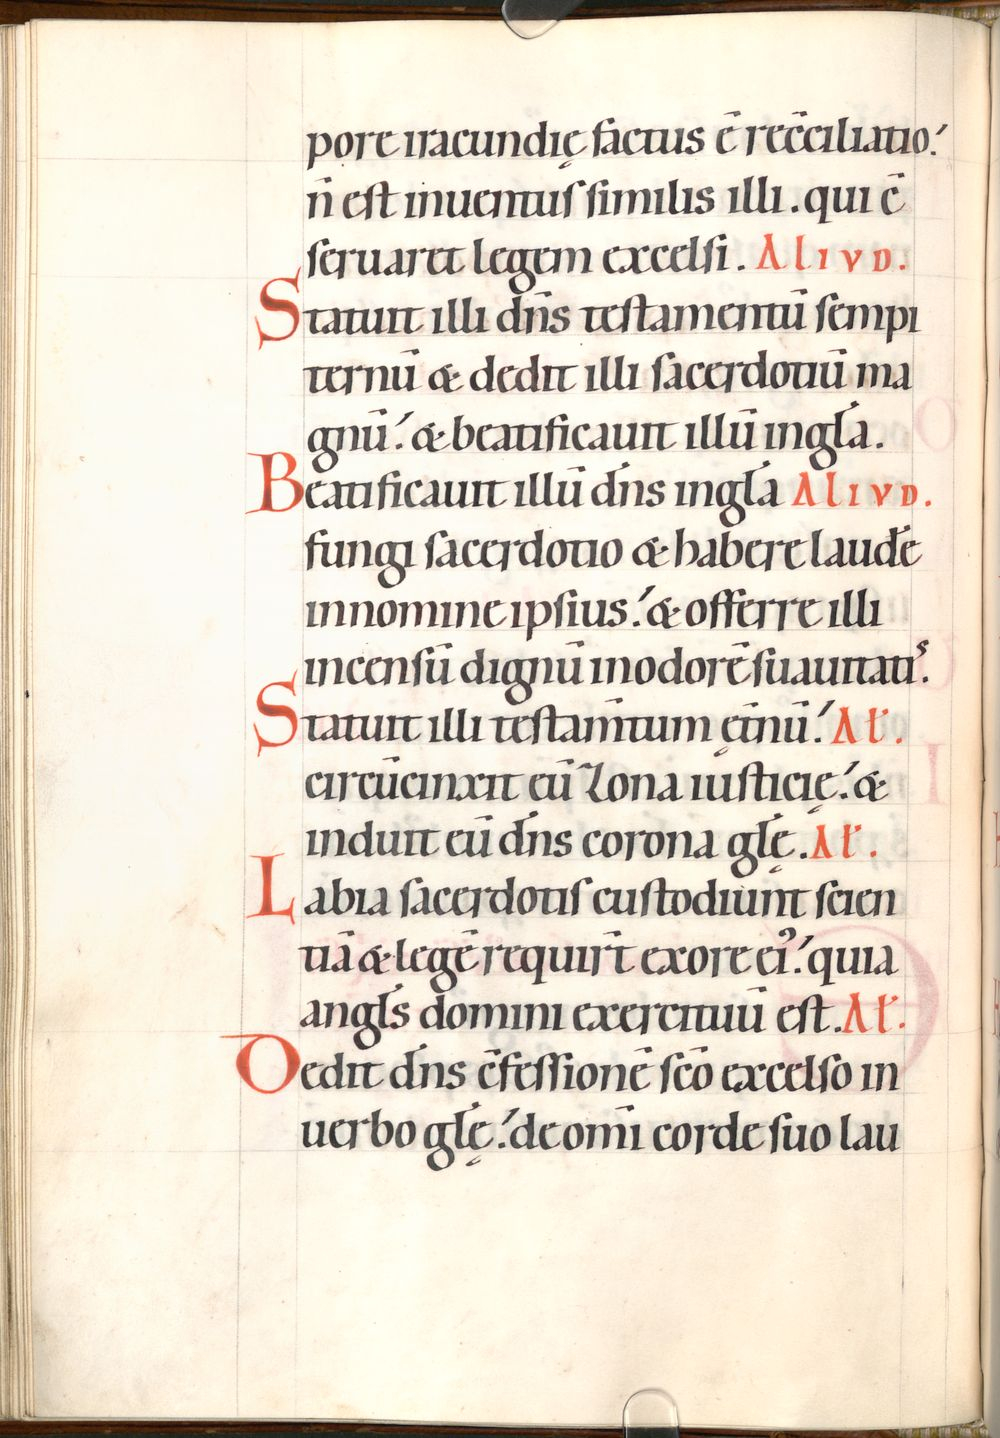 pore iracundię factus ē recc̄iliatio.
n̄ est inuentus similis illi. qui c̄
seruaret legem excelsi. ALIVD.
Statuit illi dn̄s testamentū sempi
ternū & dedit illi sacerdotiū ma
gnū. & beatificauit illū in gl̄a.
Beatificauit illū dn̄s in gl̄a ALIVD.
fungi sacerdotio & habere laudē
in nomine ipsius. & offerre illi
incensū dignū in odorē suauitatis.
Statuit illi testam̄tum ęt̄nū. Al̄.
circūcinxit eū zona iusticię. &
induit eū dn̄s corona gl̄ę. Al̄.
Labia sacerdotis custodiunt scien
tiā & legē requir̄t ex ore ei᾽. quia
angl̄s domini exercituū est. Al̄.
Dedit dn̄s c̄fessionē sc̄o excelso in
uerbo gl̄ę. de om̄i corde suo lau